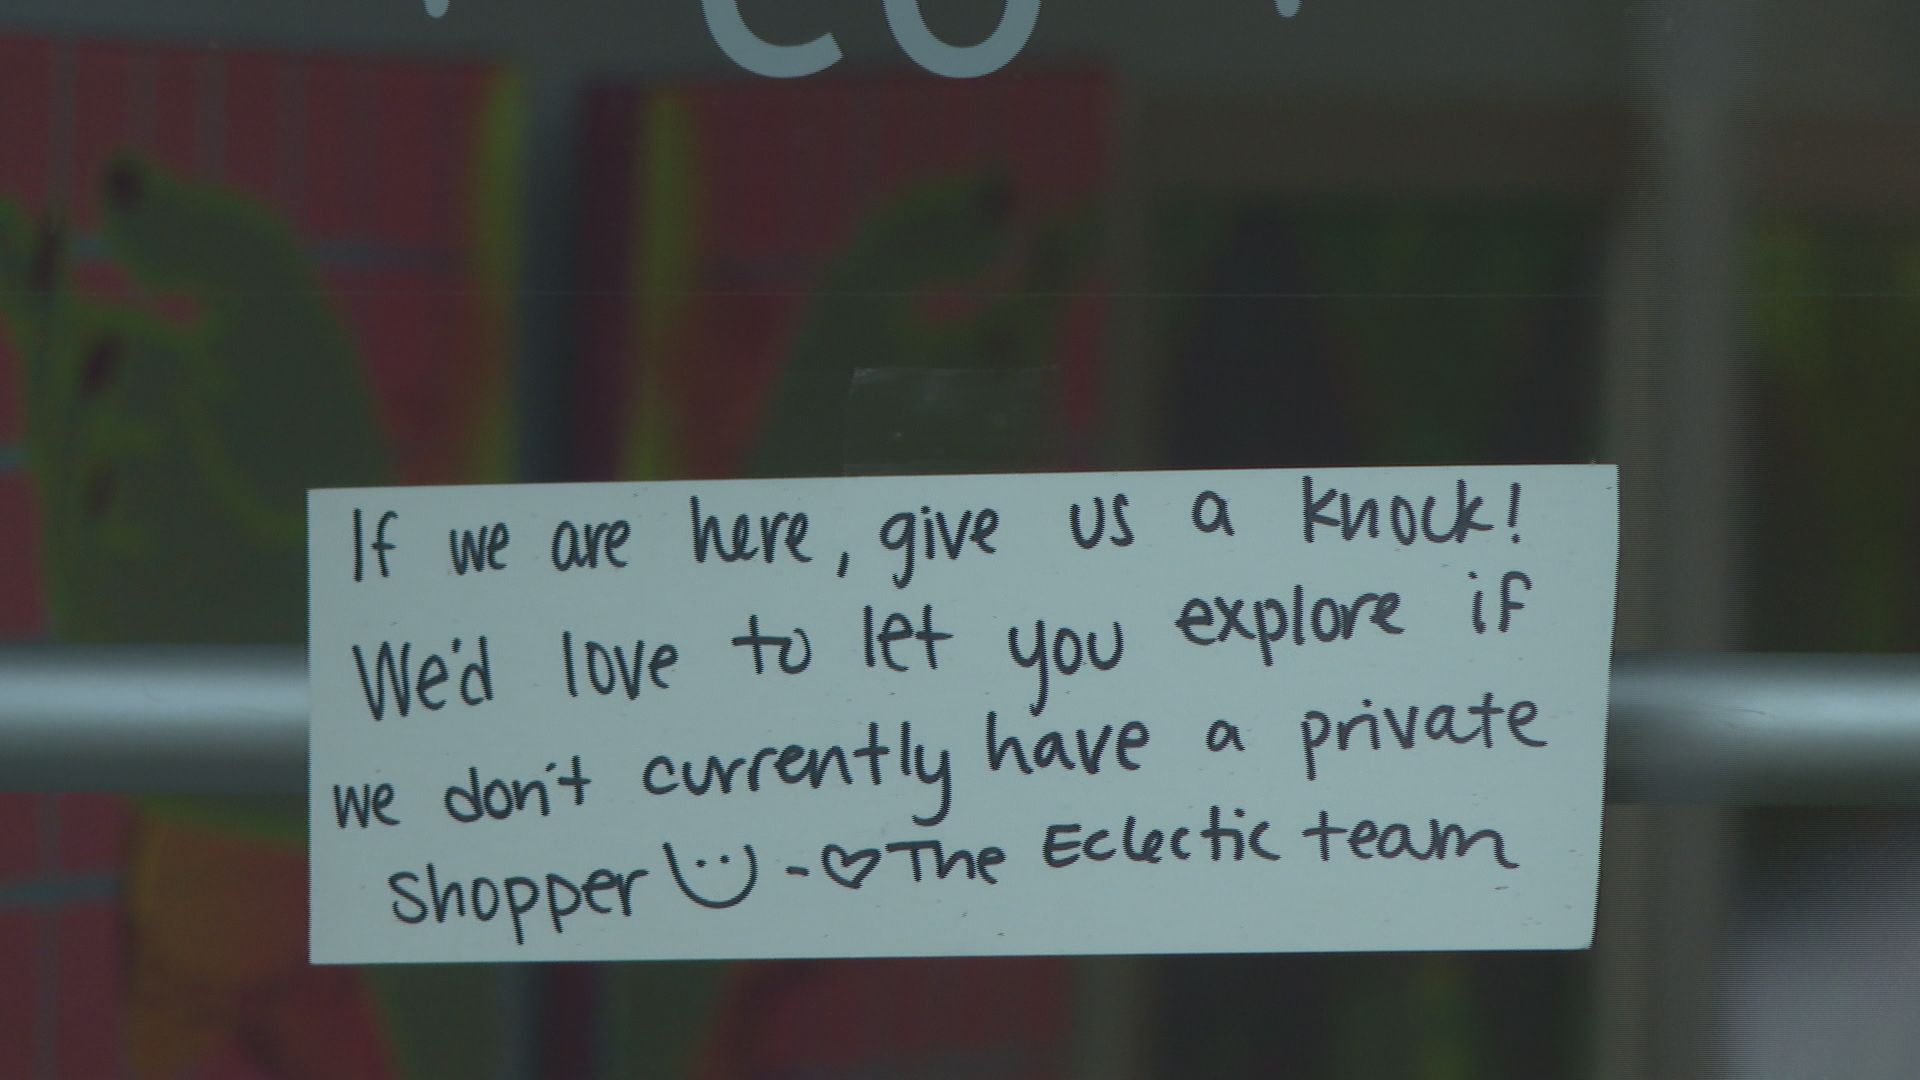 If we are here, give us a knock!
We'd love to let you explore if
we don't currently have a private
Shopper - ♡ The Eclectic team